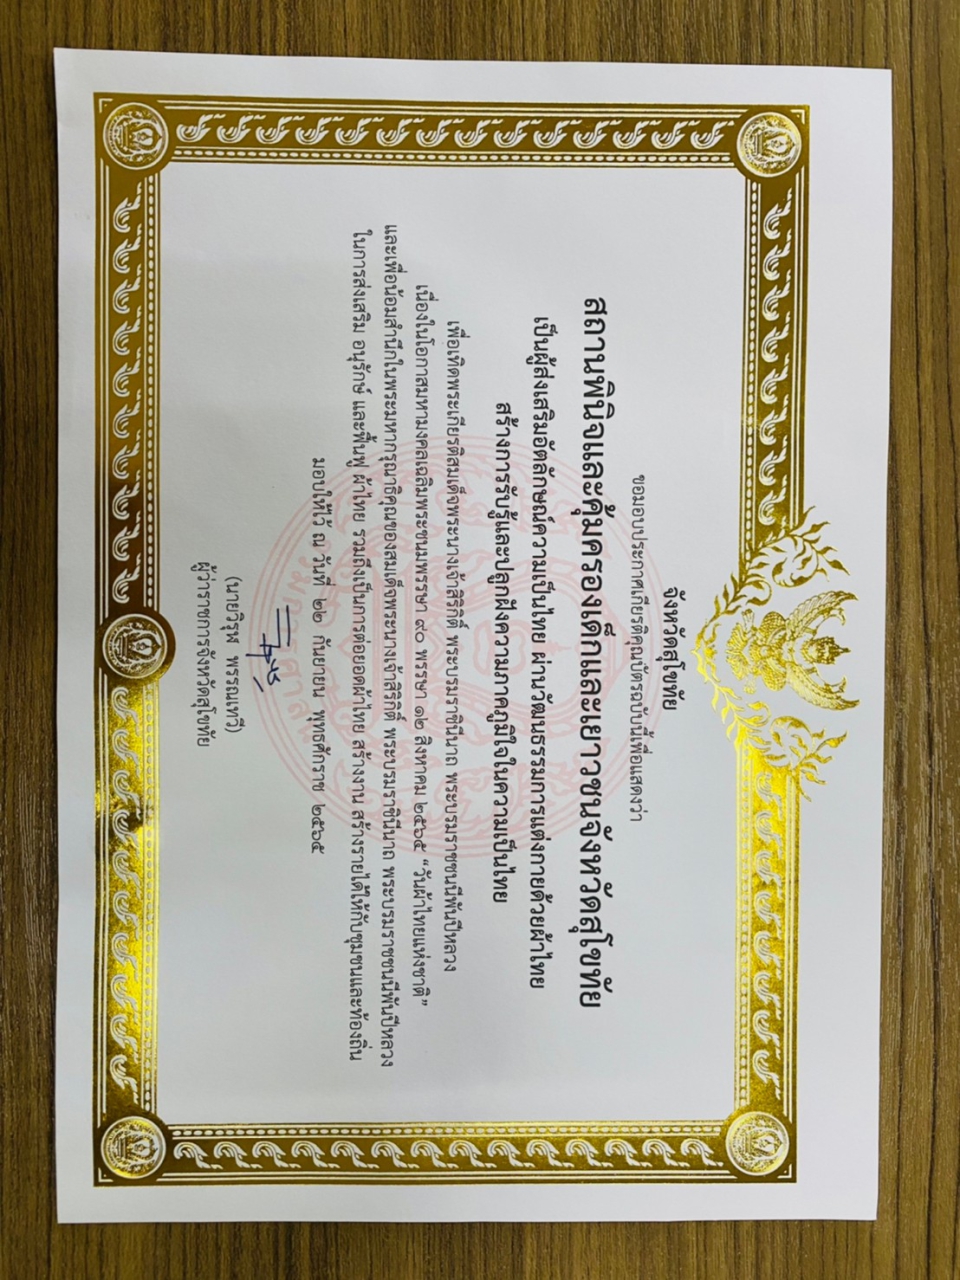 จังหวัดสุโขทัย
ขอมอบประกาศเกียรติคุณบัตรฉบับนี้เพื่อแสดงว่า
สถานพินิจและคุ้มครองเด็กและเยาวชนจังหวัดสุโขทัย
เป็นผู้ส่งเสริมอัตลักษณ์ความเป็นไทย ผ่านวัฒนธรรมการแต่งกายด้วยผ้าไทย
สร้างการรับรู้และปลูกฝังความภาคภูมิใจในความเป็นไทย
เพื่อเทิดพระเกียรติสมเด็จพระนางเจ้าสิริกิติ์ พระบรมราชินีนาถ พระบรมราชชนนีพันปีหลวง
เนื่องในโอกาสมหามงคลเฉลิมพระชนมพรรษา ๙๐ พรรษา ๑๒ สิงหาคม ๒๕๖๕ “วันผ้าไทยแห่งชาติ”
และเพื่อน้อมสำนึกในพระมหากรุณาธิคุณของสมเด็จพระนางเจ้าสิริกิติ์ พระบรมราชินีนาถ พระบรมราชชนนีพันปีหลวง
ในการส่งเสริม อนุรักษ์ และฟื้นฟู ผ้าไทย รวมถึงเป็นการต่อยอดผ้าไทย สร้างงาน สร้างรายได้ให้กับชุมชนและท้องถิ่น
มอบให้ไว้ ณ วันที่ ๒๒ กันยายน พุทธศักราช ๒๕๖๕
(นายวิรุฬ พรรณเทวี)
ผู้ว่าราชการจังหวัดสุโขทัย